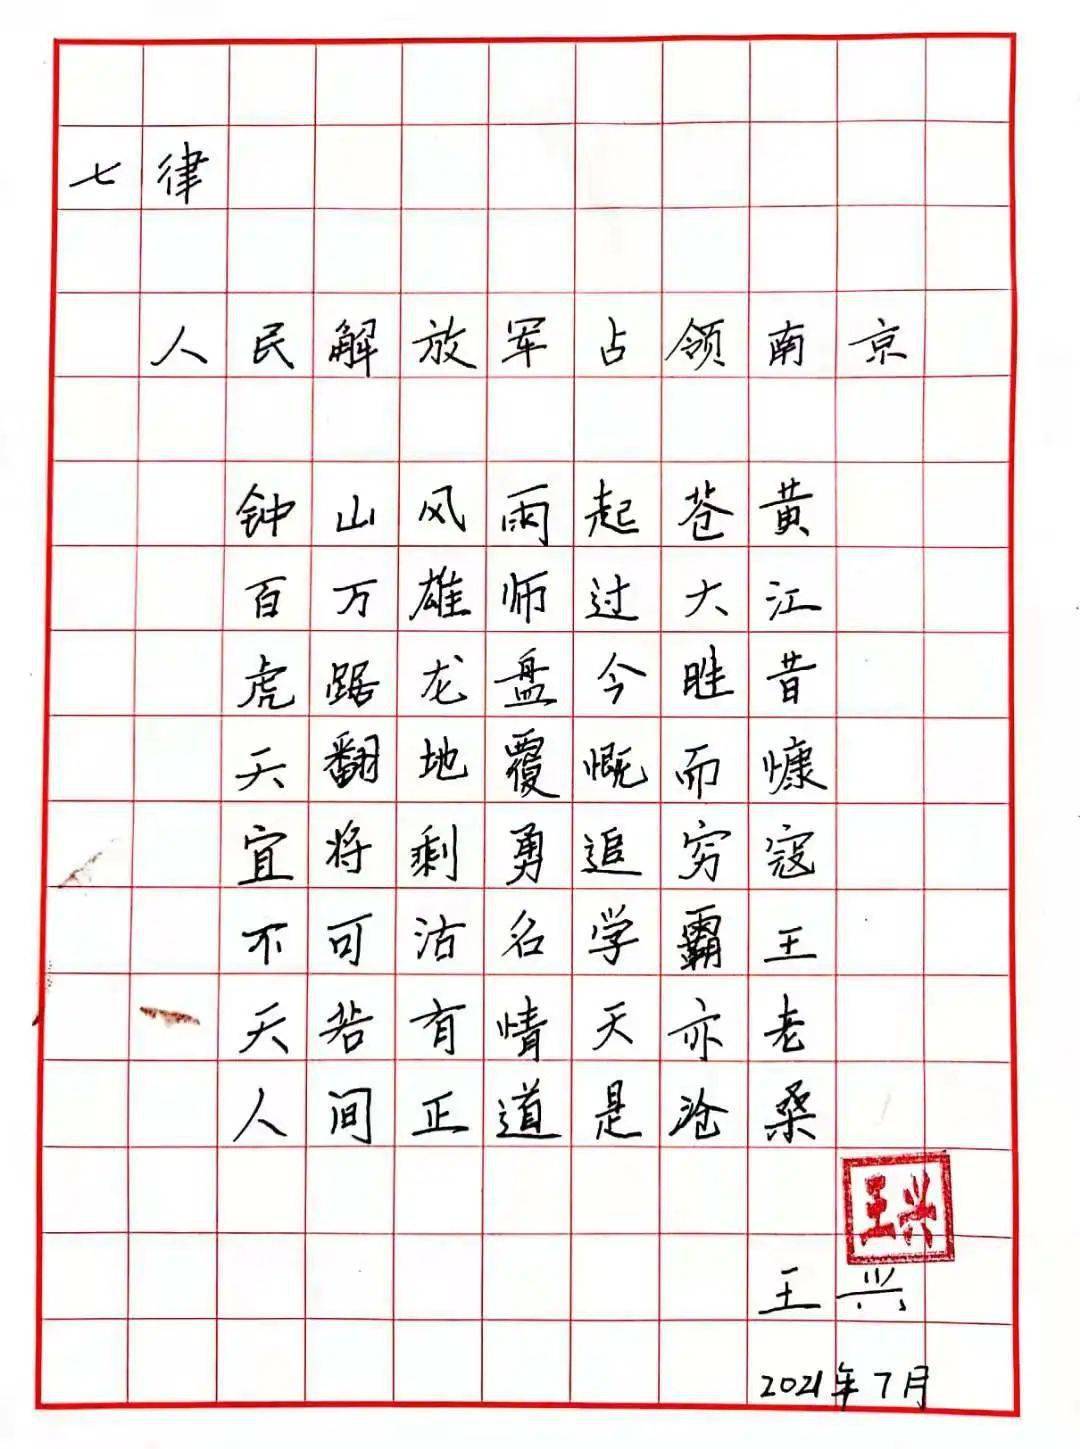 七律
人民解放军占领南京
钟山风雨起苍黄
百万雄师过大江
虎踞龙盘今胜昔
天翻地覆慨而慷
宜将剩勇追穷寇
不可沽名学霸王
天若有情天亦老
人间正道是沧桑
王兴
王兴
2021年7月